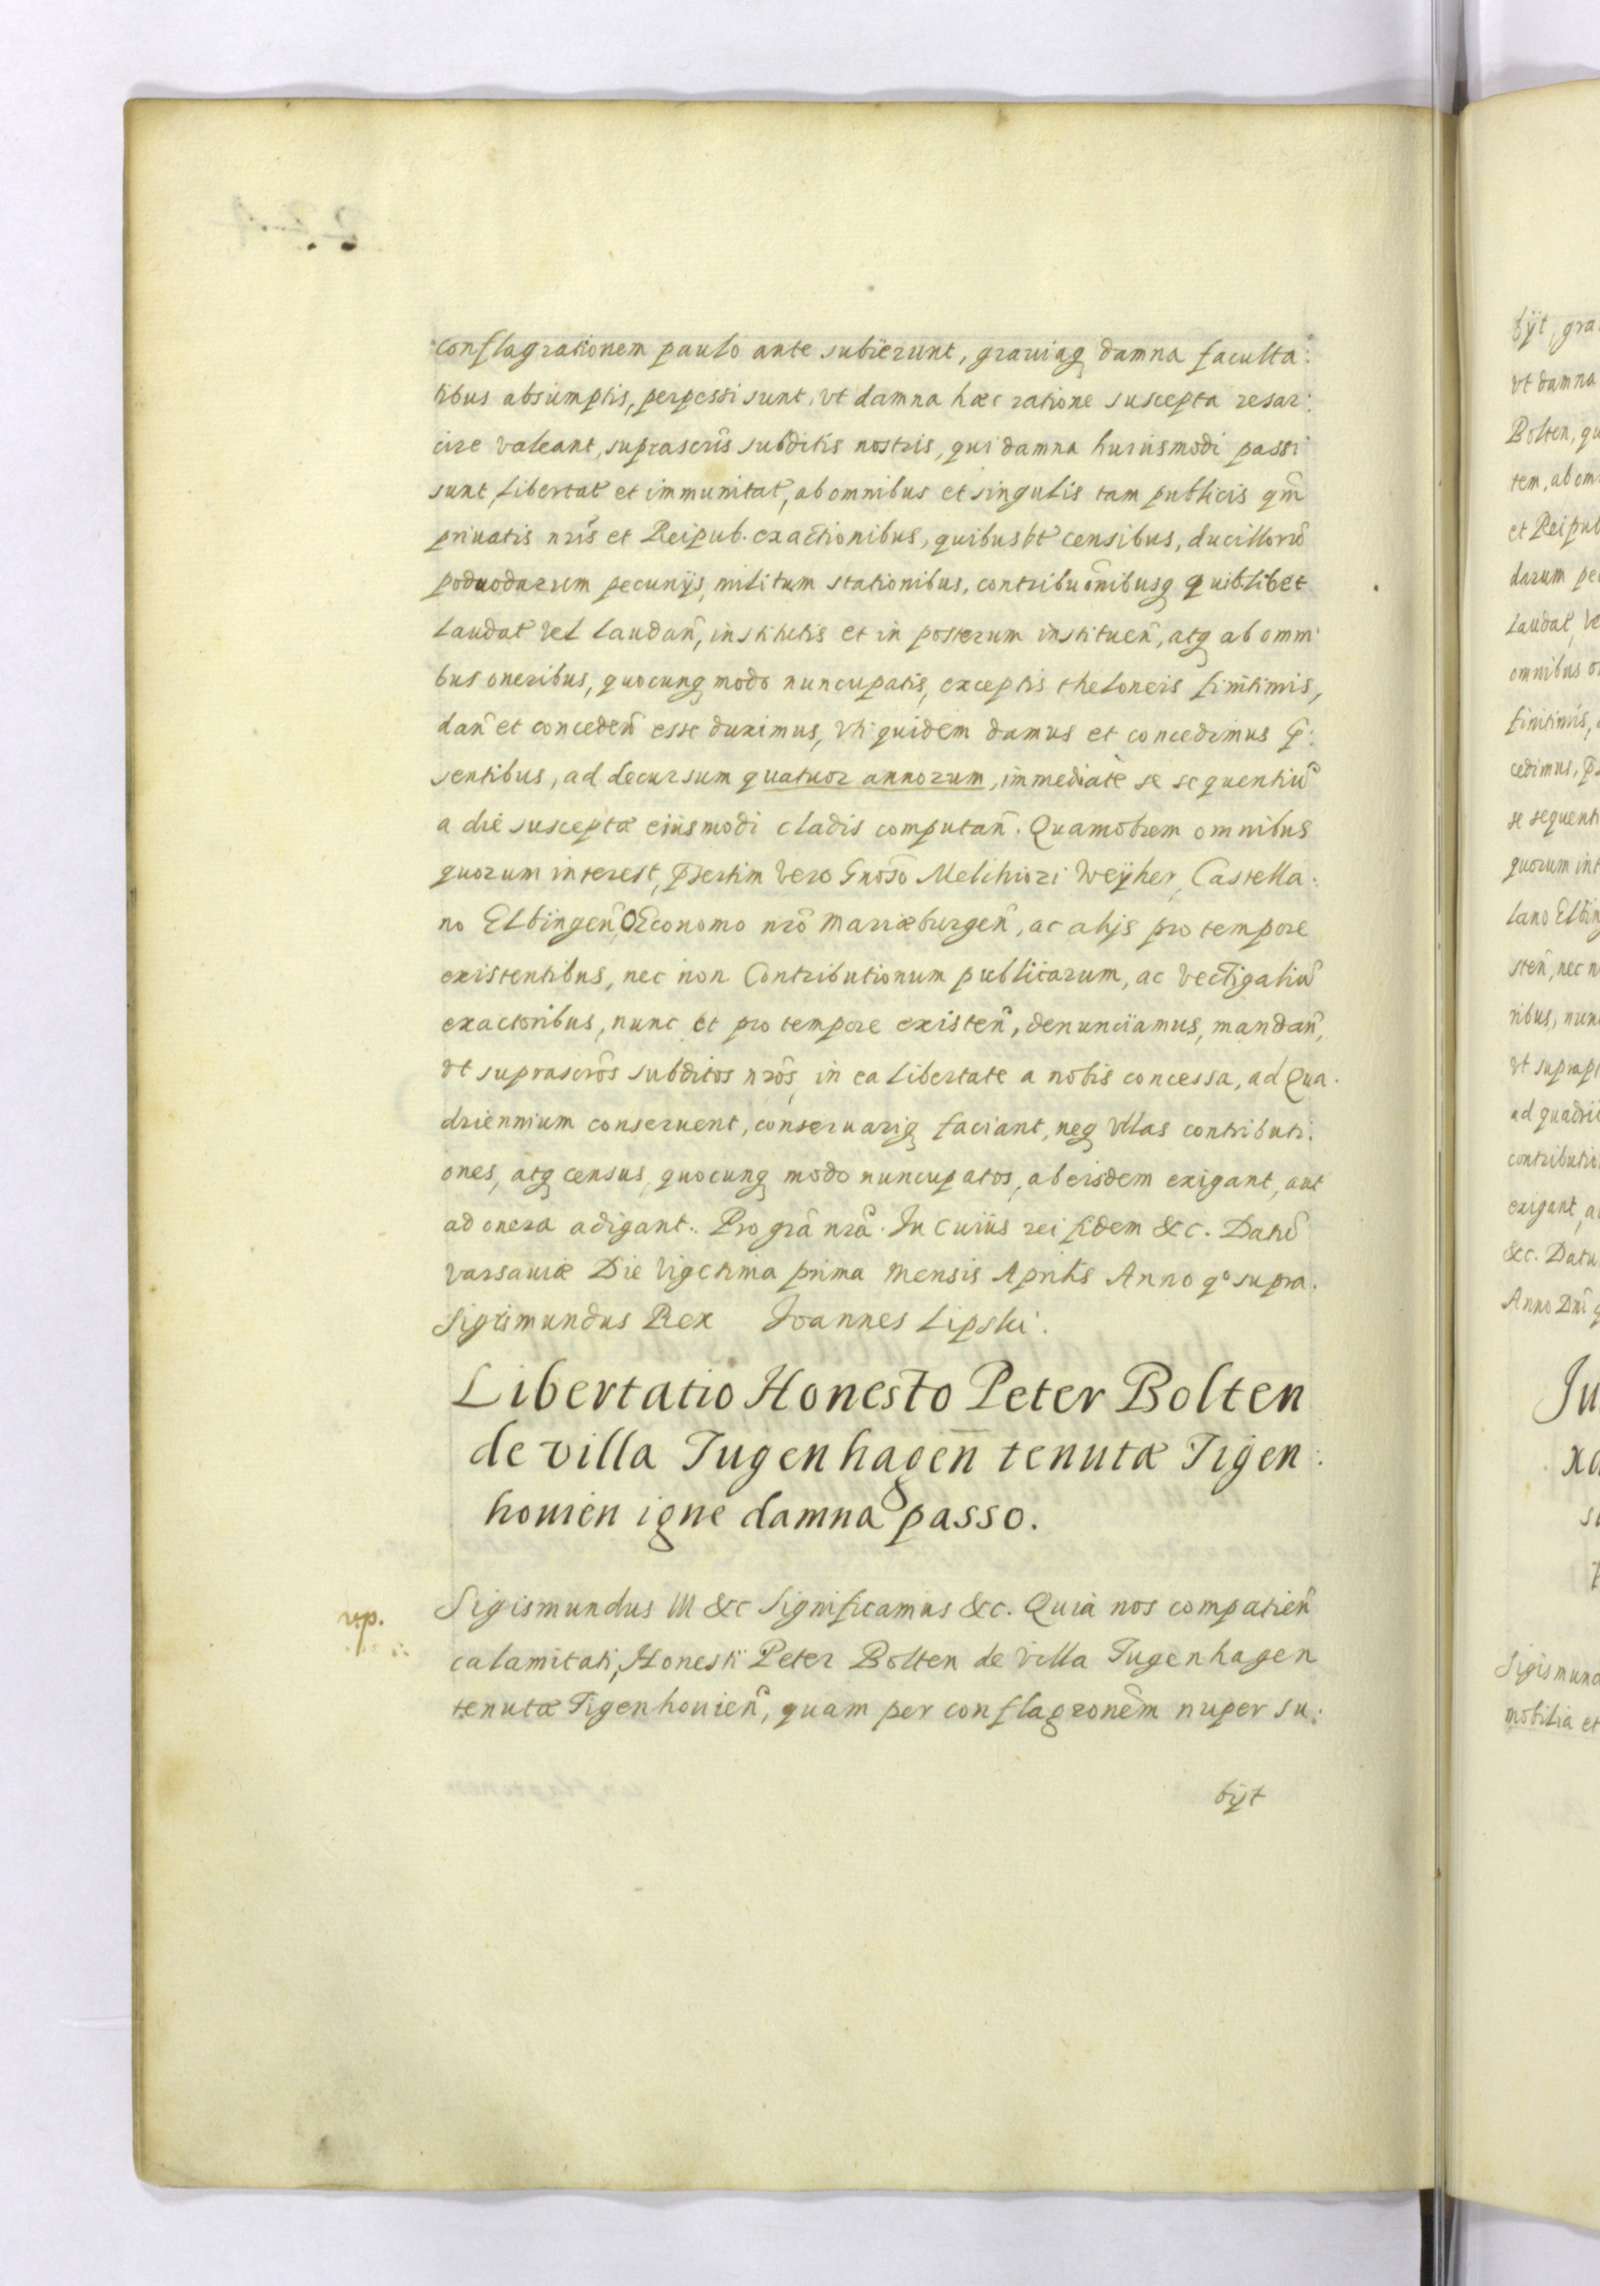 conflagrationem paulo ante subierunt, grauiaq damna faculta:
tibus absumptis, perpessi sunt, vt damna hac ratione suscepta resar:
cire valeant, suprascris subditis nostris, qui damna huiusmodi passi
sunt, libertat et immunitat, ab omnibus et singulis tam publicis qm
priuatis nris et Reipub. exactionibus, quibusbt censibus, ducillorū
poduodarum pecunijs, militum stationibus, contribuōnibusq quiblibet
laudat vel laudañ, institutis et in posterum institueñ, atq ab omni
bus oneribus, quocunq modo nuncupatis, exceptis theloneis finitimis,
dañ et concedeñ esse duximus, vti quidem damus et concedimus p:
sentibus, ad decursum quatuor annorum, immediatè se sequentiū
a die susceptæ eiusmodi cladis computañ. Quamobrem omnibus
quorum interest, psertim vero Gnoso Melchiori Weÿher, Castella:
no Elbingeñ, OEconomo nrō Mariæburgeñ, ac alijs pro tempore
existentibus, nec non Contributionum publicarum, ac vectigaliū
exactoribus, nunc et pro tempore existeñ, denunciamus, mandañ,
vt suprascrōs subditos nrōs, in ea libertate a nobis concessa, ad Qua:
driennium conseruent, conseruariq faciant, neq vllas contributi:
ones, atq census, quocunq modo nuncupatos, ab eisdem exigant, aut
ad onera adigant. Pro grā nrā. In cuius rei fidem &c. Datū
Varsauiæ Die Vigesima prima Mensis Aprilis Anno qº supra.
Sigismundus Rex Joannes Lipski.
Libertatio Honesto Peter Bolten
de villa Tugenhagen̄ tenutæ Tigen:
houien igne damna passo.
Sigismundus III &c Significamus &c. Quia nos compatieñ
calamitati, Honesti Peter Bolten de villa Tugenhagen
tenutæ Tigenhouieñ, quam per conflagronēm nuper su:
bijt
bijt, gra
vt damna
Bolten, qu
tem, ab om
et Reipub
darum pe
laudat, ve
omnibus o
finitimis,
cedimus, p
se sequent
quorum int
lano Elbin
steñ, nec n
ribus, nun
vt suprap
ad quadri
contributio
exigant, a
&c. Datu
Anno Dni q
Ju
xa
Sigismund
mobilia et